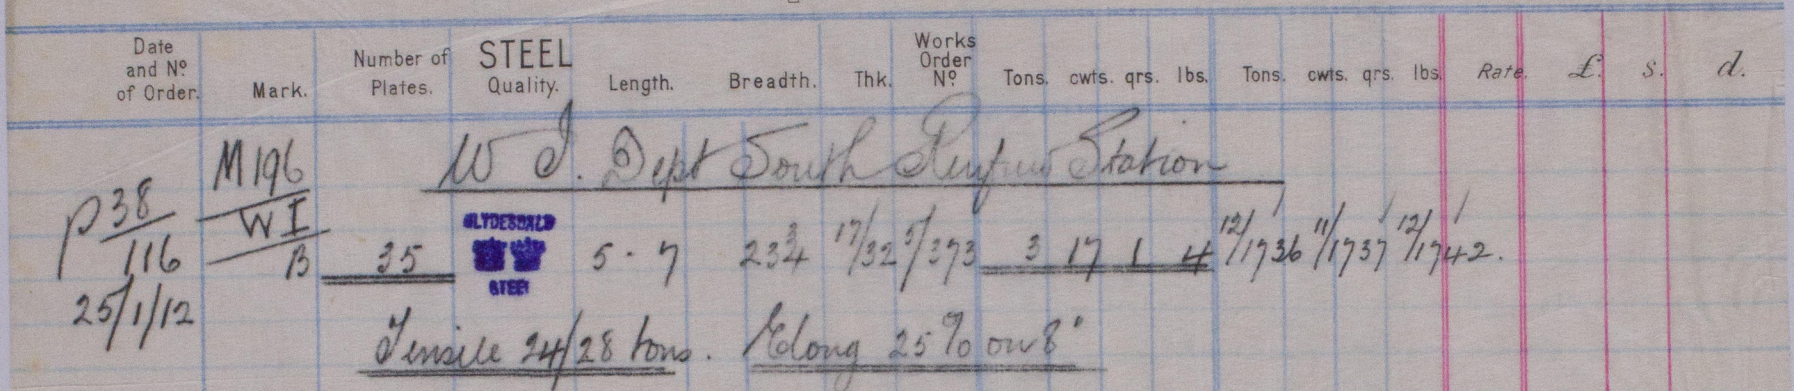 Date and Nº of Order. Mark. Number of Plates. STEEL Quality. Length. Breadth. Thk. Works Order Nº Tons. cwts. qrs. lbs. Tons. cwts. qrs. lbs. Rate. £. s. d.
M196 W I. Dept South Station
P 38/116 WI B 35 CLYDESDALE STEEL 5 - 7 23 3/4 17/32 5/373 3 17 1 4 12/1736 11/1737 12/1742.
25/1/12
Tensile 24/28 tons. Elong 25% on 8"